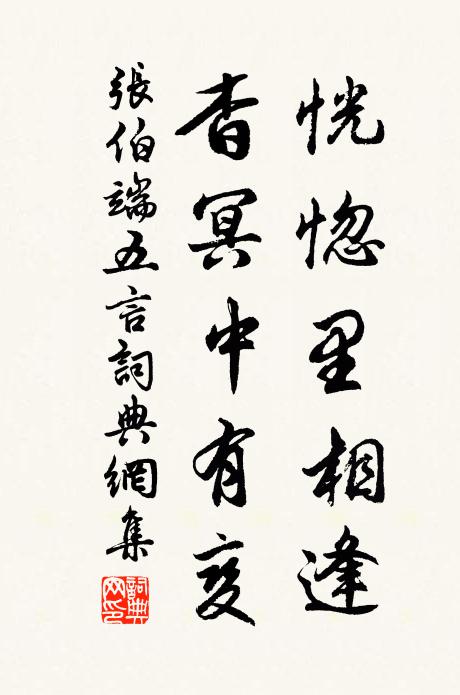 恍惚里相逢
杳冥中有变
張伯端五言詞典網集
詞典网印